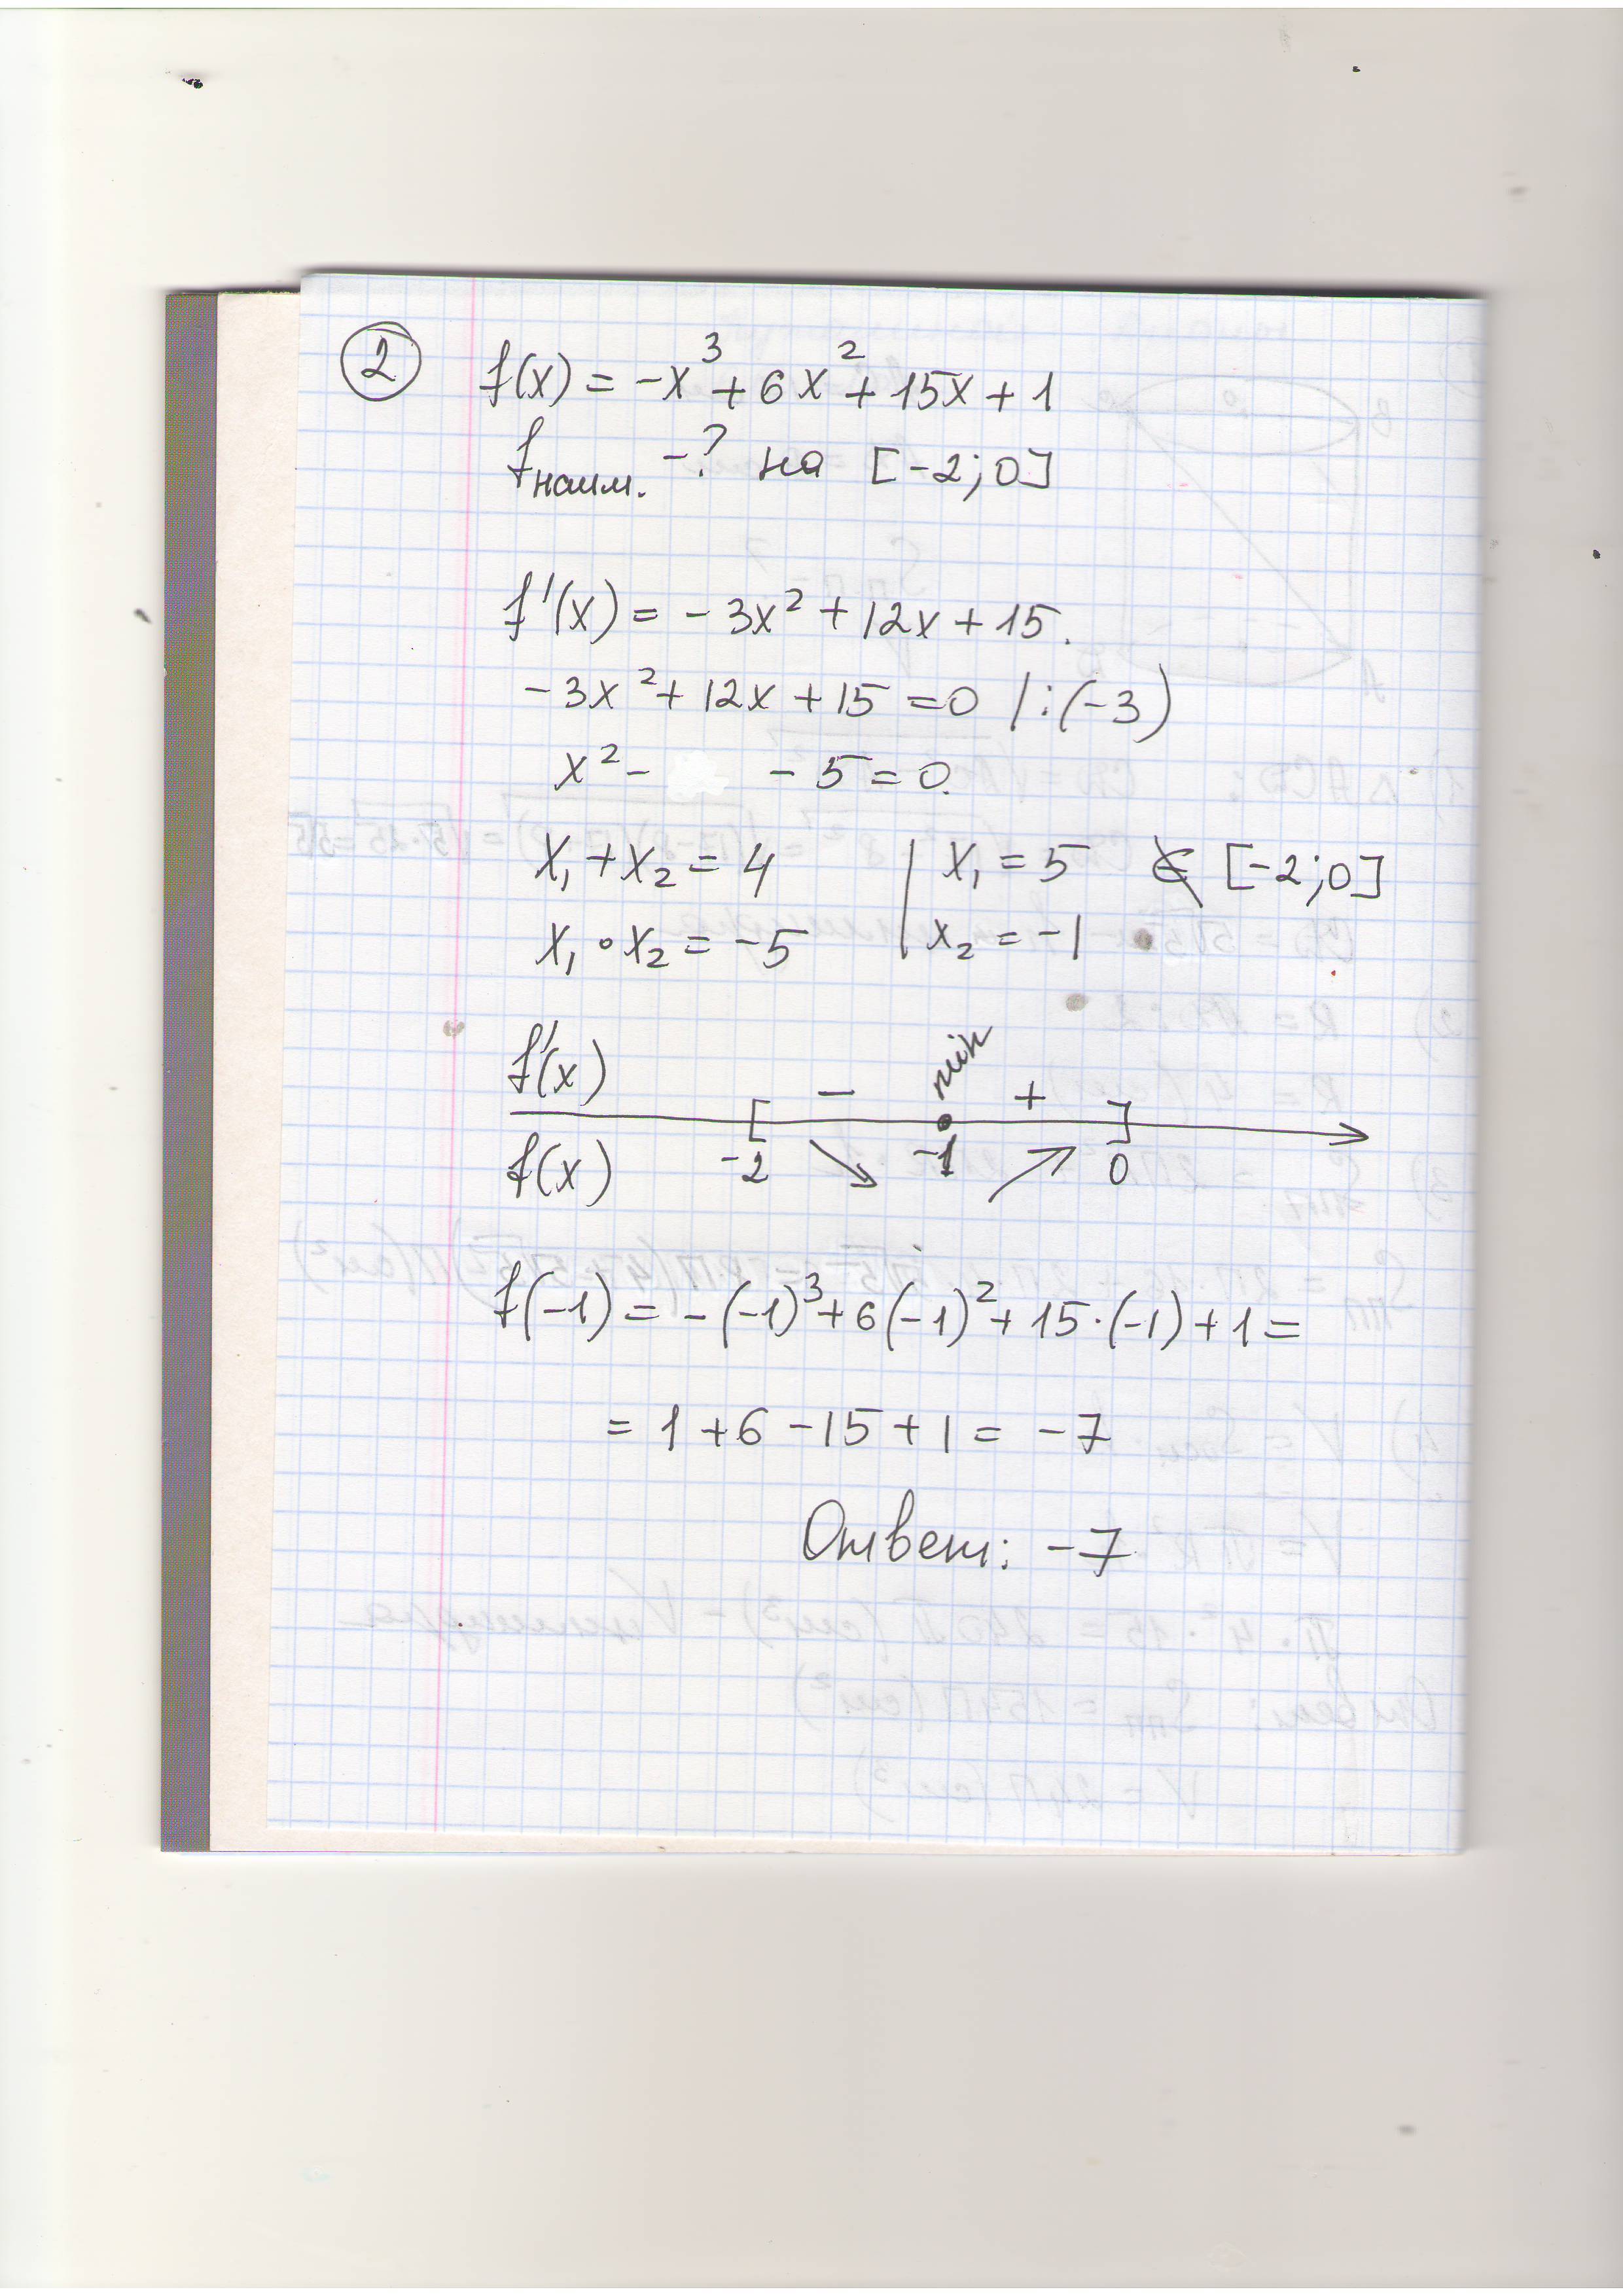 ② f(x) = -x³ + 6x² + 15x + 1
fнаим. -? на [-2;0]
f'(x) = - 3x² + 12x + 15.
-3x² + 12x + 15 = 0 /:(-3)
x² - - 5 = 0.
x₁ + x₂ = 4 | x₁ = 5 ∉ [-2;0]
x₁ • x₂ = -5 | x₂ = -1
f'(x) - min +
f(x) -2 -1 0
f(-1) = -(-1)³ + 6(-1)² + 15·(-1) + 1 =
= 1 + 6 - 15 + 1 = -7
Ответ: -7